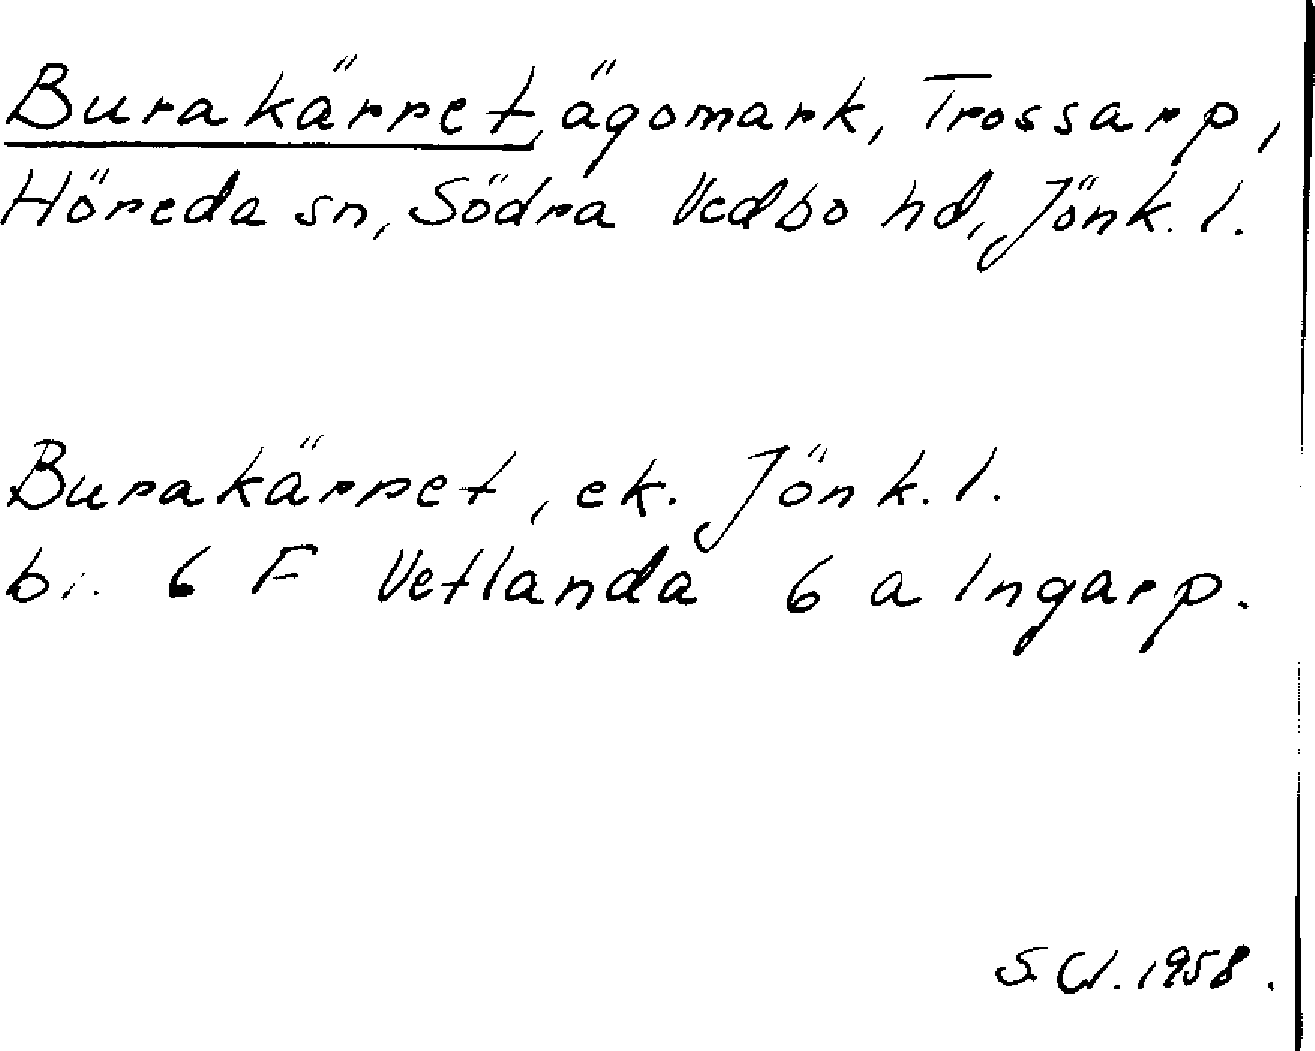 Burakärret, ägomark, Trossarp,
Höreda sn, Södra Vedbo hd, Jönk. l.
Burakärret, ek. Jönk. l.
bl. 6 F Vetlanda 6 a Ingarp.
S.W. 1958.